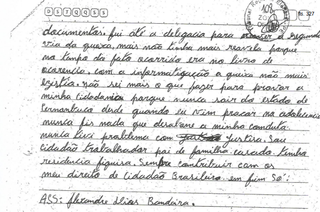 documentar. fui até a delegacia para a segunda
via da queixa, mais não tinha mais revela porque
na tempo do fato ocorrido era no livro de
ocorrencia, com a informatização a queixa não mais
existia. não sei mais o que fazer para provar a
minha cidadania porque nunca sair do estado de
quando eu vim
nunca fiz nada que a minha conduta
nunca tive problema com Justiça. Sou
cidadão trabalhador pai de familia casado. tenho
residencia figuira. Sempre contribuir com os
meu direito de cidadão Brasileiro em fim Só:
ASS: Alixandre Dias Bandeira.